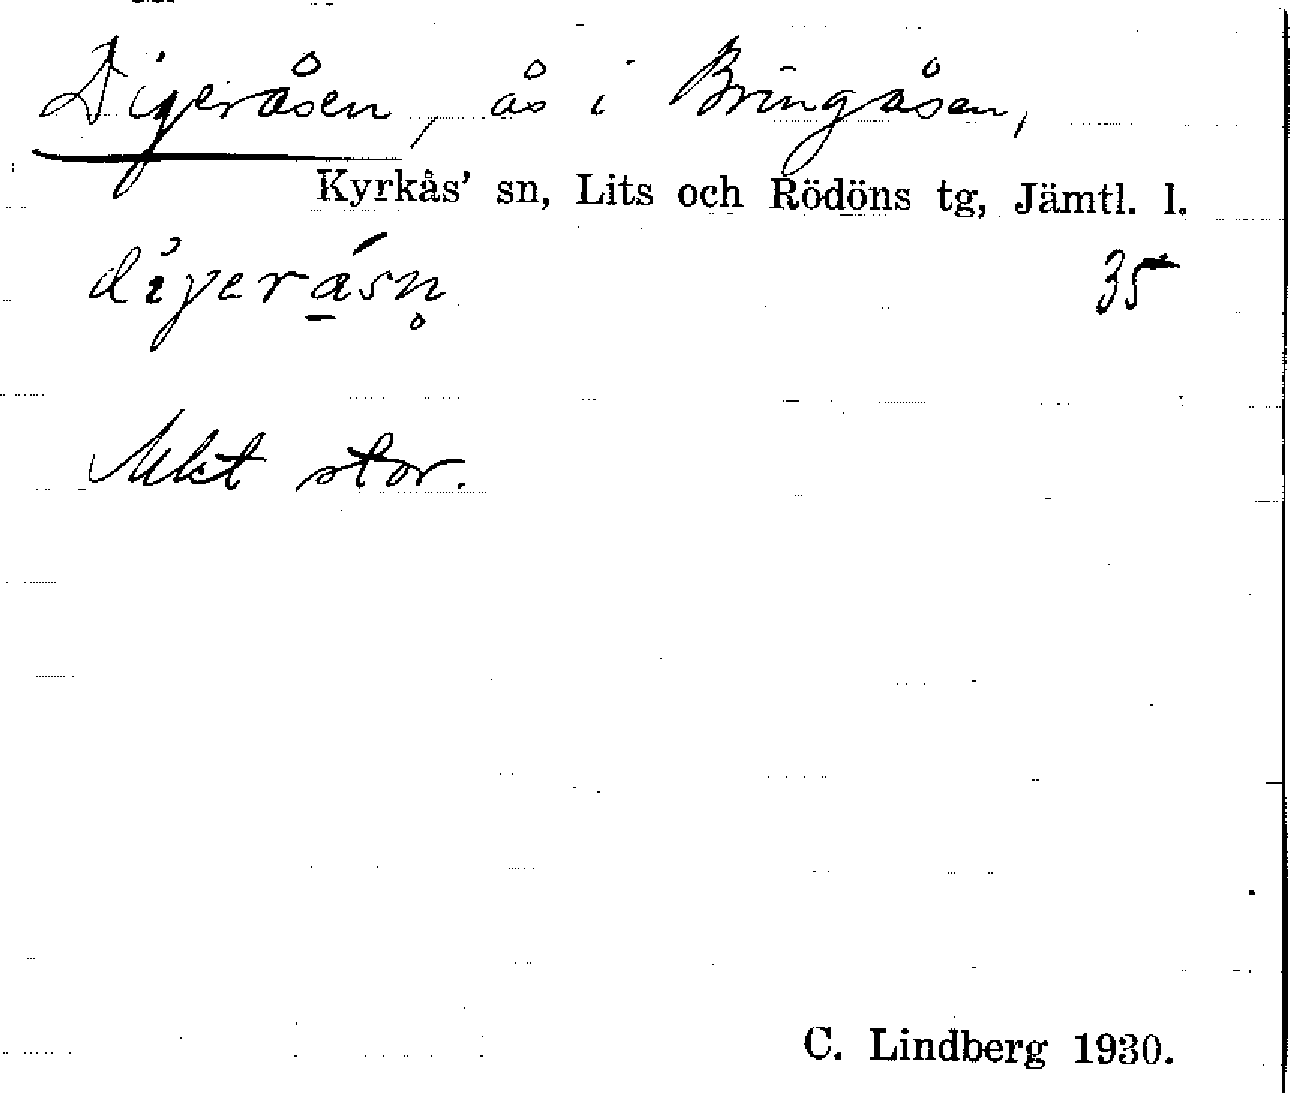 Digeråsen, ås i Bringåsen,
Kyrkås' sn, Lits och Rödöns tg, Jämtl. l.
dìgerá̱sn̥ 35
Mkt stor.
C. Lindberg 1930.